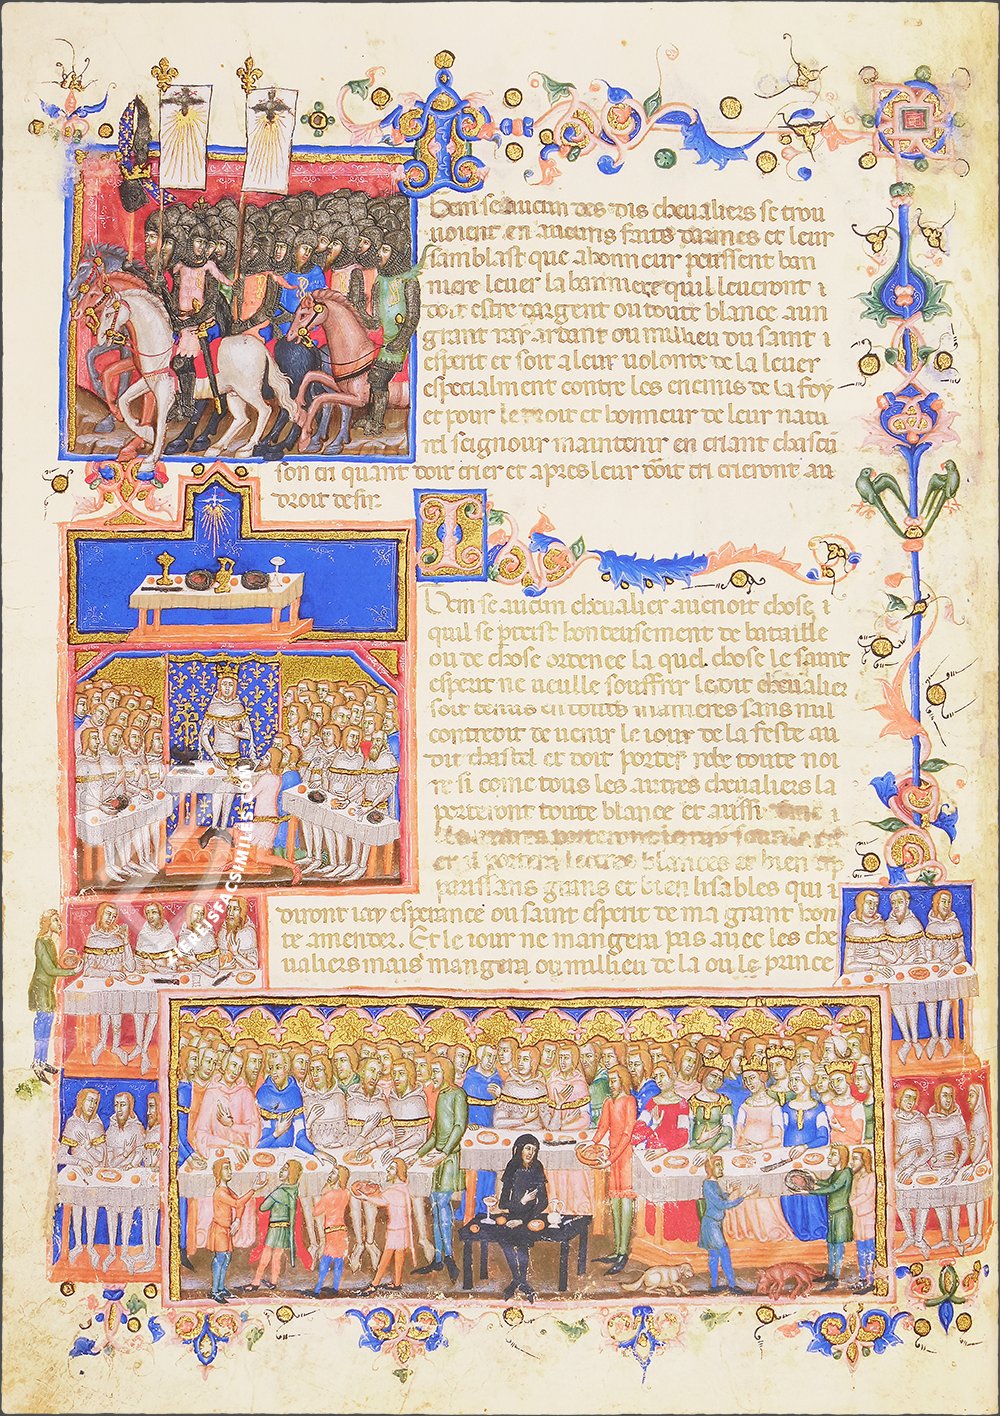 Item se aucun des dis chevaliers se trou
voient en aucuns fais darmes et leur
samblast que a honneur peussent ban
niere lever la banniere quil leveront i
doit estre dargent ou toute blanche a un
grant ray ardant ou milieu du saint i
esperit et soit a leur volonte de la lever
especialment contre les enemis de la foy
et pour le droit et honneur de leur natu
rel seignour maintenir en criant chascu
son cri quant doit crier et apres leur doit cri crieront au
droit desir
Item se aucun chevalier avenoit chose i
quil se preist honteusement de bataille
ou de chose ordenee la quel chose le saint
esperit ne veulle souffrir le dit chevalier
soit tenus en toutes manieres sans nul
contredit de venir le iour de la feste au
dit chastel et doit porter robe toute noi
re si come tous les autres chevaliers la
porteront toute blance et aussi
er il portera lectres blances et bien ap
parissans grans et bien lisables qui i
diront iay esperance ou saint esperit de ma grant hon
te amender. Et le iour ne mangera pas avec les che
valiers mais mangera ou millieu de la ou le prince
ZEREISFACSIMILES.COM